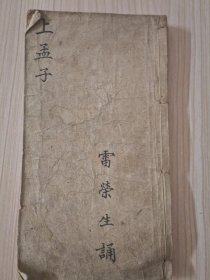 上孟子
雷榮生誦